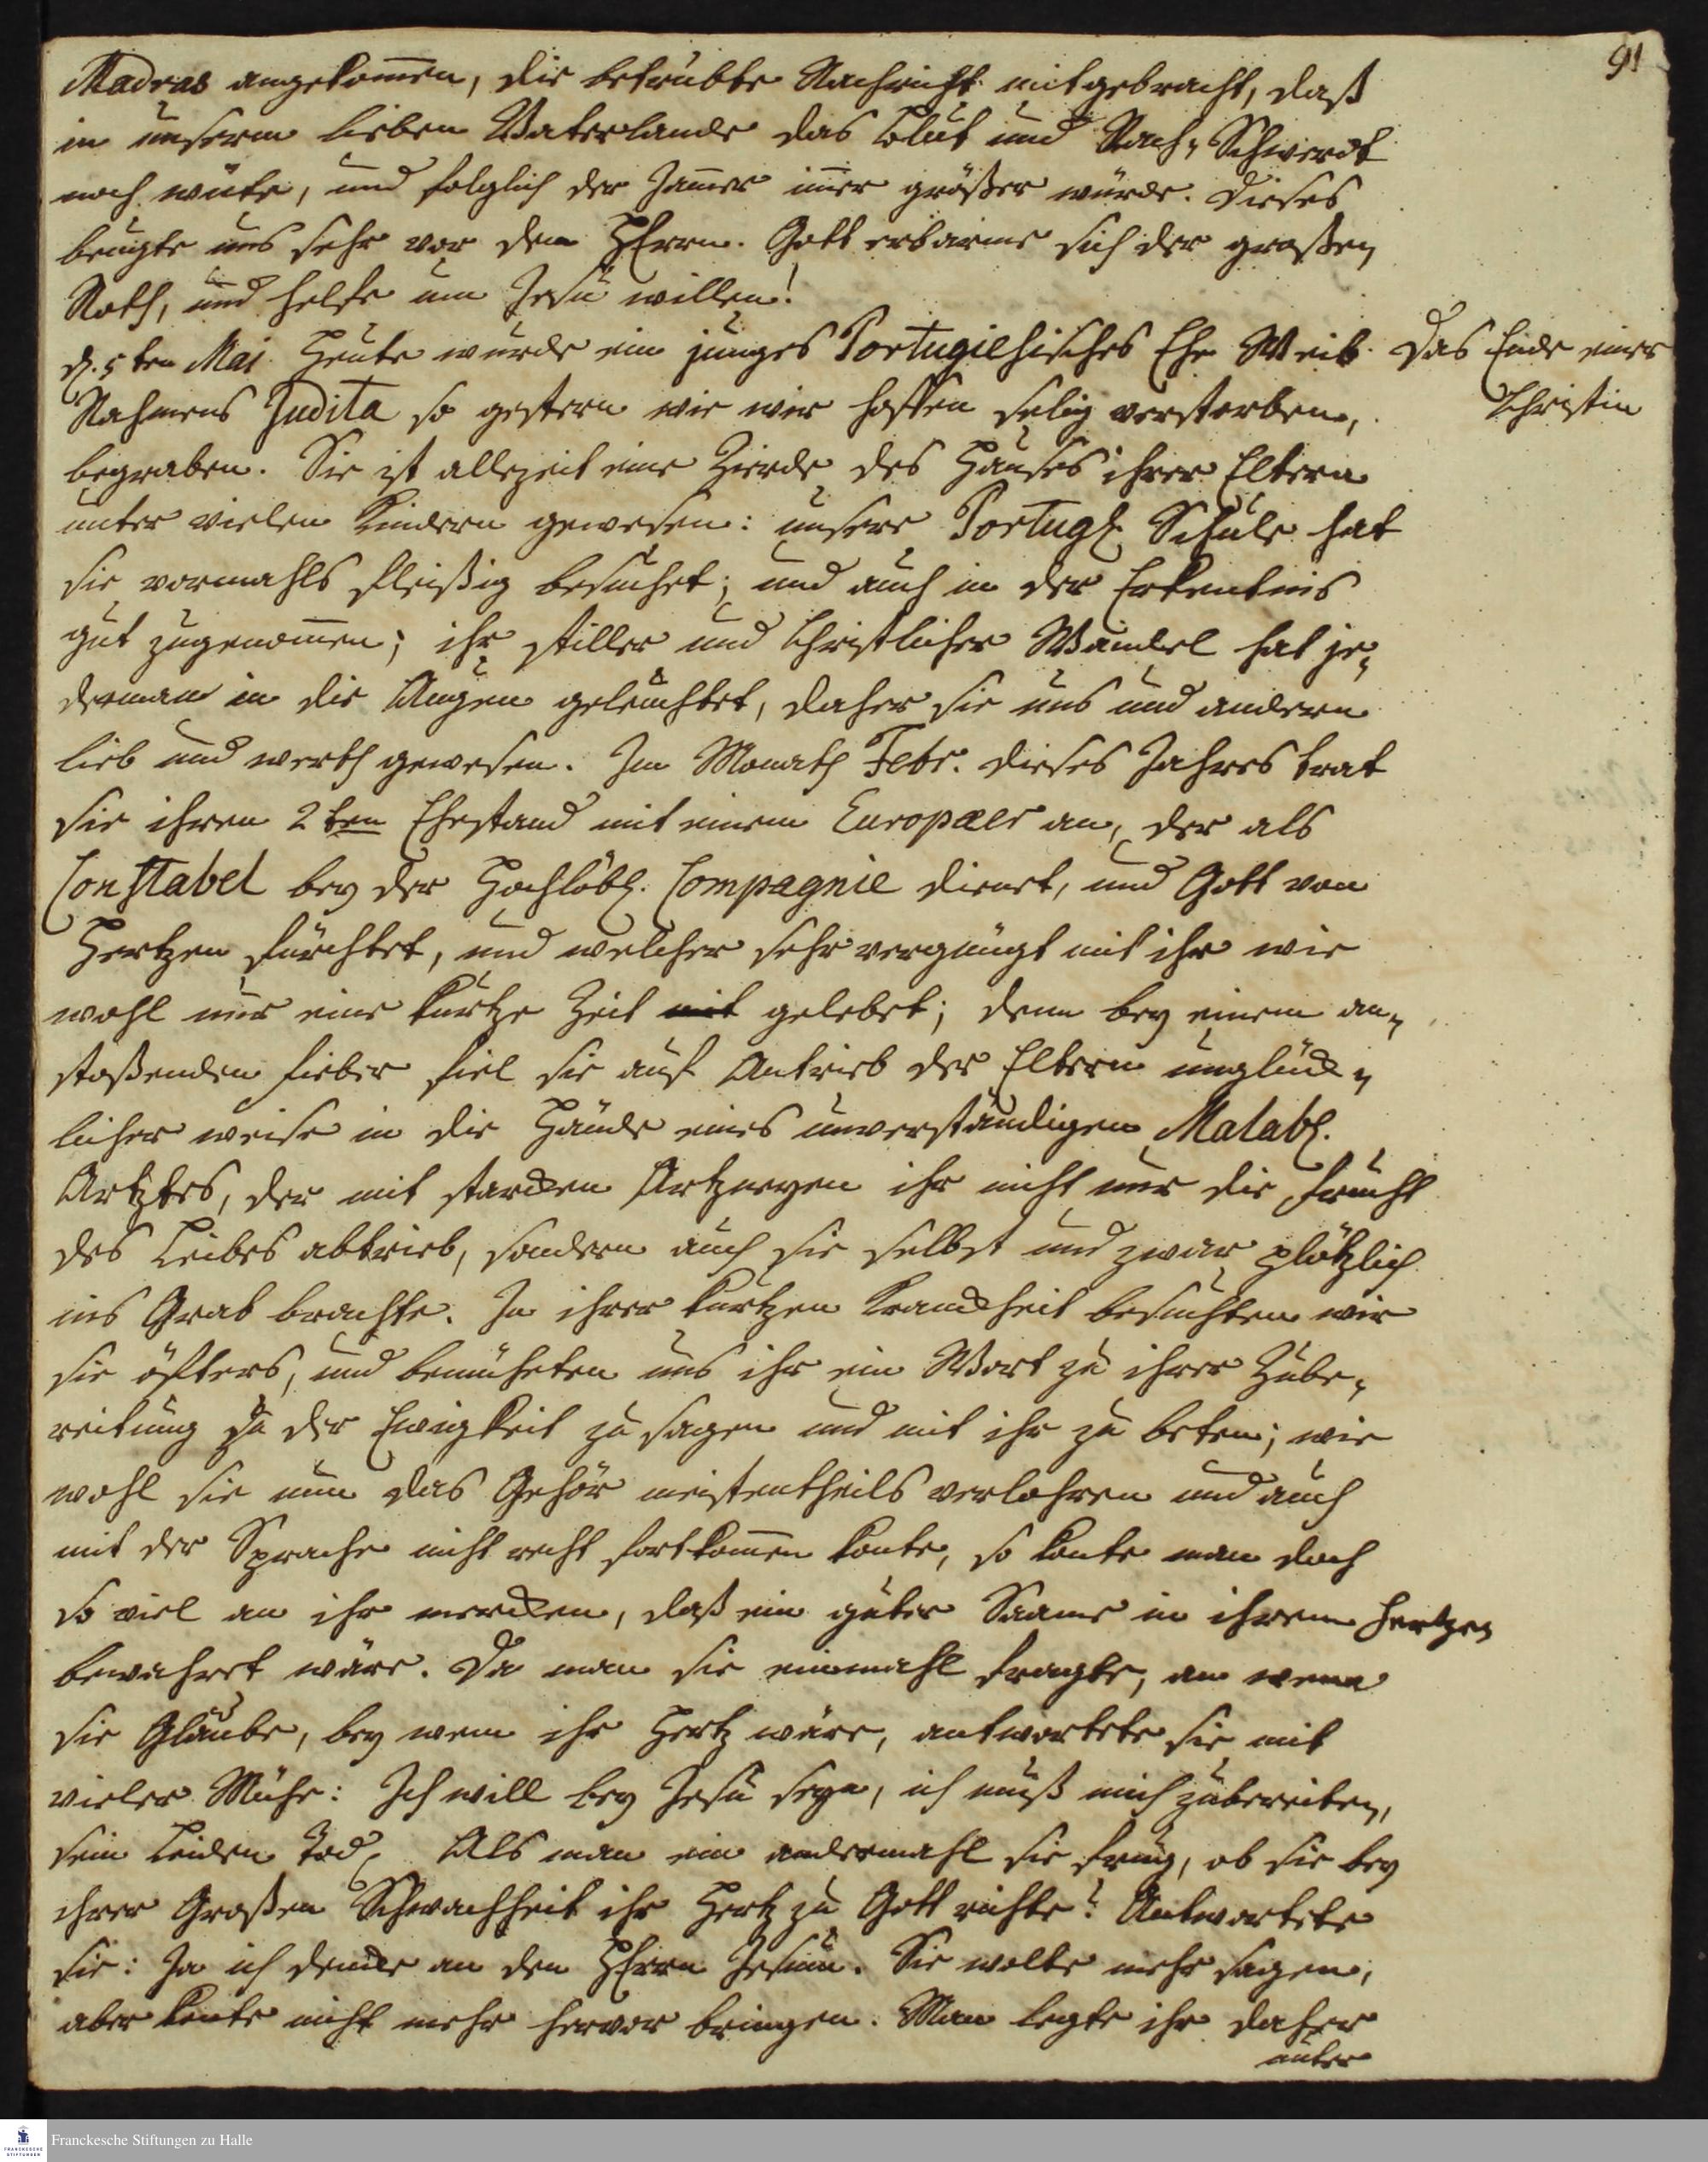 91
Madras angekom̄en, die betrübte Nachricht mitgebracht, daß
in unserm lieben Vaterlande das Blut und Rach-Schwerdt
noch wüte, und folglich der Jam̄er im̄er größer würde. Dieses
beugte uns sehr vor dem HErrn. Gott erbarme sich der großen
Noth, und helfe um Jesu willen!
d. 5ten Maj. Heute wurde ein junges Portugiesisches Ehe Weib
Das Ende einer
Christin
Nahmens Judita so gestern wie wir hoffen selig verstorben,
begraben. Sie ist allezeit eine Zierde des Hauses ihrer Eltern
unter vielen Kindern gewesen: unsere Portugs. Schule hat
sie vormahls fleißig besuchet; und auch in der Erkentnis
gut zugenom̄en; ihr stiller und Christlicher Wandel hat je-
derman in die Augen geleuchtet, daher sie uns und andern
lieb und werth gewesen. Im Monath Febr. dieses Jahres trat
sie ihren 2ten Ehestand mit einem Europæer an, der als
Constabel bey der Hochlöbl. Compagnie dienet, und Gott von
Hertzen fürchtet, und welcher sehr vergnügt mit ihr wie
wohl nur eine kurtze Zeit mit gelebet; denn bey einem an-
stoßenden Fieber fiel sie auf Antrieb der Eltern unglück-
licher weise in die Hände eines unverständigen Malab.
Artztes, der mit starcken Artzneyen ihr nicht nur die Frucht
des Leibes abtrieb, sondern auch sie selbst und zwar plötzlich
ins Grab brachte. In ihrer kurtzen Kranckheit besuchten wir
sie öfters, und bemüheten uns ihr ein Wort zu ihrer Zube-
reitung zu der Ewigkeit zu sagen und mit ihr zu beten; wie
wohl sie nun das Gehör meistentheils verlohren und auch
mit der Sprache nicht recht fortkom̄en konte, so konte man doch
so viel an ihr mercken, daß ein guter Saame in ihrem Hertzen
bewahret wäre. Da man sie einmahl fragte, an wenn
sie Glaube, bey wem ihr Hertz wäre, antwortete sie mit
vieler Mühe: Ich will bey Jesu seyn, ich muß mich zubereiten,
sein Leiden Tod, Als man ein andermahl sie frug, ob sie bey
ihrer Großen Schwachheit ihr Hertz zu Gott richte? Antwortete
sie: Ja ich dencke an den HErrn Jesum. Sie wolte mehr sagen,
aber konte nicht mehr hervor bringen. Man legte ihr daher
unter
Franckesche Stiftungen zu Halle